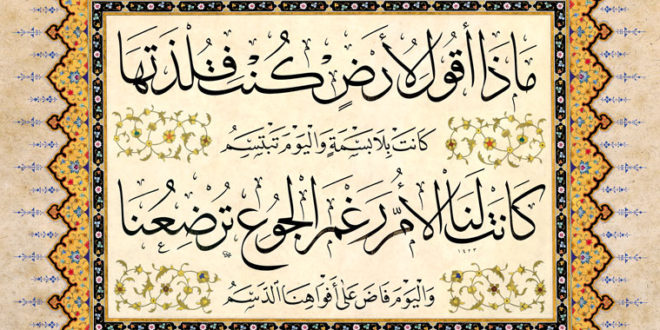 مَاذَا أَقُولُ لِأَرْضٍ كُنْتَ فِلْذَتَهَا
كَانَتْ بِلَا بَسْمَةٍ وَالْيَوْمَ تَبْتَسِمُ
كَانَتْ لَنَا الْأُمَّ رَغْمَ الْجُوعِ تُرْضِعُنَا
١٤٢٣
وَالْيَوْمَ فَاضَ عَلَى أَفْوَاهِنَا الدَّسَمُ